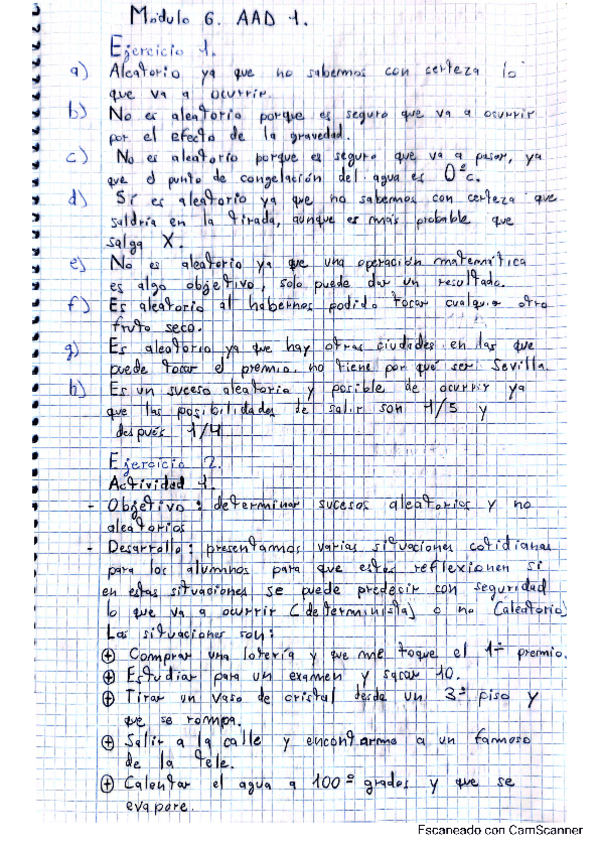 Modulo 6. AAD 1.
Ejercicio 1.
a) Aleatorio ya que no sabemos con certeza lo
que va a ocurrir.
b) No es aleatorio porque es seguro que va a ocurrir
por el efecto de la gravedad.
c) No es aleatorio porque es seguro que va a pasar, ya
que el punto de congelación del agua es 0ºc.
d) Sí es aleatorio ya que no sabemos con certeza que
saldría en la tirada, aunque es más probable que
salga X.
e) No es aleatorio ya que una operación matemática
es algo objetivo, solo puede dar un resultado.
f) Es aleatorio al habernos podido tocar cualquier otro
fruto seco.
g) Es aleatorio ya que hay otras ciudades en las que
puede tocar el premio, no tiene por qué ser Sevilla.
h) Es un suceso aleatorio y posible de ocurrir ya
que las posibilidades de salir son 1/5 y
después 1/4
Ejercicio 2.
Actividad 1.
- Objetivo: determinar sucesos aleatorios y no
aleatorios
- Desarrollo: presentamos varias situaciones cotidianas
para los alumnos para que estos reflexionen si
en estas situaciones se puede predecir con seguridad
lo que va a ocurrir (determinista) o no (aleatorio)
Las situaciones son:
+ Comprar una lotería y que me toque el 1º premio.
+ Estudiar para un examen y sacar 10.
+ Tirar un vaso de cristal desde un 3º piso y
que se rompa.
+ Salir a la calle y encontarme a un famoso
de la tele.
+ Calentar el agua a 100º grados y que se
evapore.
Escaneado con CamScanner